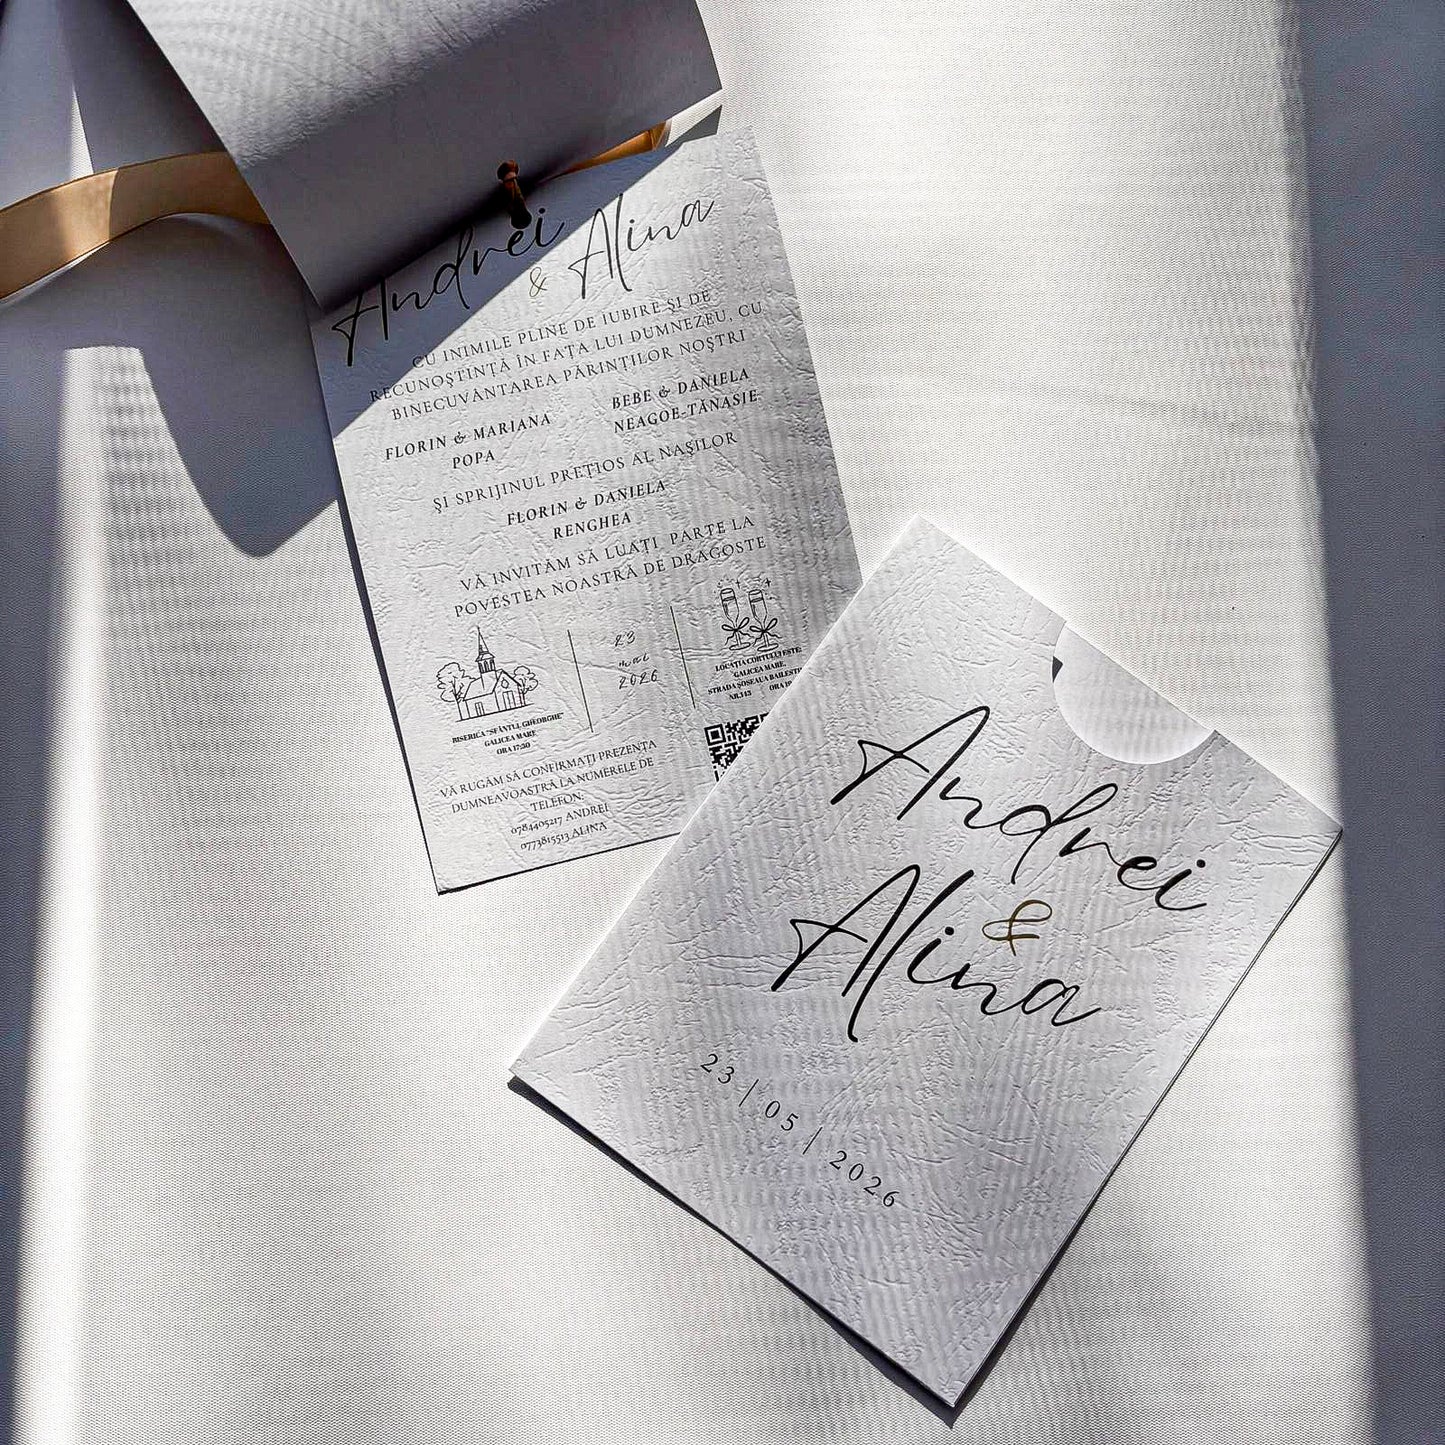 Andrei
& Alina
CU INIMILE PLINE DE IUBIRE ŞI DE
RECUNOŞTINŢĂ ÎN FAŢA LUI DUMNEZEU, CU
BINECUVÂNTAREA PĂRINŢILOR NOŞTRI
FLORIN & MARIANA
POPA
BEBE & DANIELA
NEAGOE-TĂNASIE
ŞI SPRIJINUL PREŢIOS AL NAŞILOR
FLORIN & DANIELA
RENGHEA
VĂ INVITĂM SĂ LUAŢI PARTE LA
POVESTEA NOASTRĂ DE DRAGOSTE
BISERICA "SFÂNTUL GHEORGHE"
GALICEA MARE
ORA 17:30
23
mai
2026
LOCAŢIA CORTULUI ESTE:
GALICEA MARE,
STRADA ŞOSEAUA BAILESTI
NR.143 ORA
VĂ RUGĂM SĂ CONFIRMAŢI PREZENŢA
DUMNEAVOASTRĂ LA NUMERELE DE
TELEFON:
0784405217 ANDREI
0773815513 ALINA
Andrei
&
Alina
23 | 05 | 2026